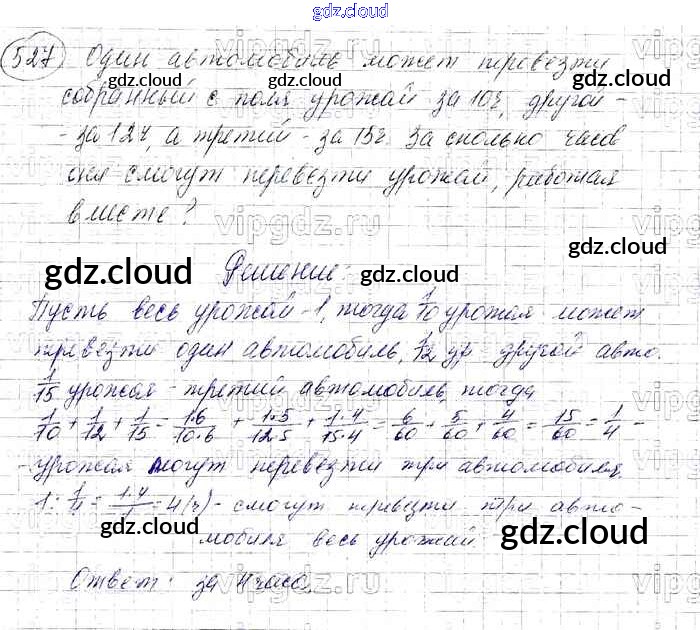 gdz.cloud
527 Один автомобиль может перевезти
собранный с поля урожай за 10ч, другой -
- за 12ч, а третий - за 15ч. За сколько часов
они смогут перевезти урожай, работая
вместе?
Решение:
Пусть весь урожай - 1, тогда 1/10 урожая может
перевезти один автомобиль, 1/12 ур. другой авто.
1/15 урожая - третий автомобиль, тогда
1/10 + 1/12 + 1/15 = 1·6/10·6 + 1·5/12·5 + 1·4/15·4 = 6/60 + 5/60 + 4/60 = 15/60 = 1/4 -
- урожая могут перевезти три автомобиля.
1 : 1/4 = 1·4/1 = 4(ч) - смогут перевезти три авто-
мобиля весь урожай
Ответ: за 4 часа.